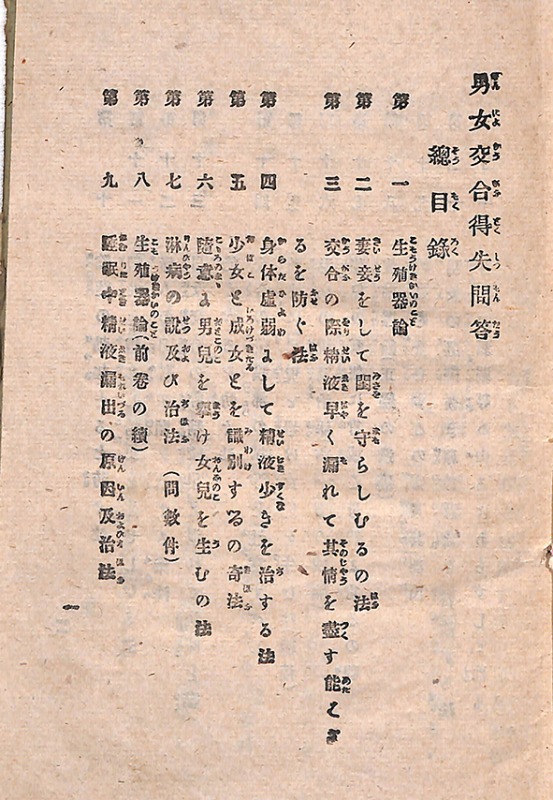 男女交合得失問答
總目錄
第一 生殖器論
第二 妻妾をして閨を守らしむるの法
第三 交合の際精液早く漏れて其情を盡す能はざ
るを防ぐ法
第四 身体虚弱にして精液少きを治する法
第五 少女と成女とを識別するの奇法
第六 隨意に男兒を擧け女兒を生むの法
第七 淋病の説及び治法(問數件)
第八 生殖器論(前卷の續)
第九 睡眠中精液漏出の原因及治法
一